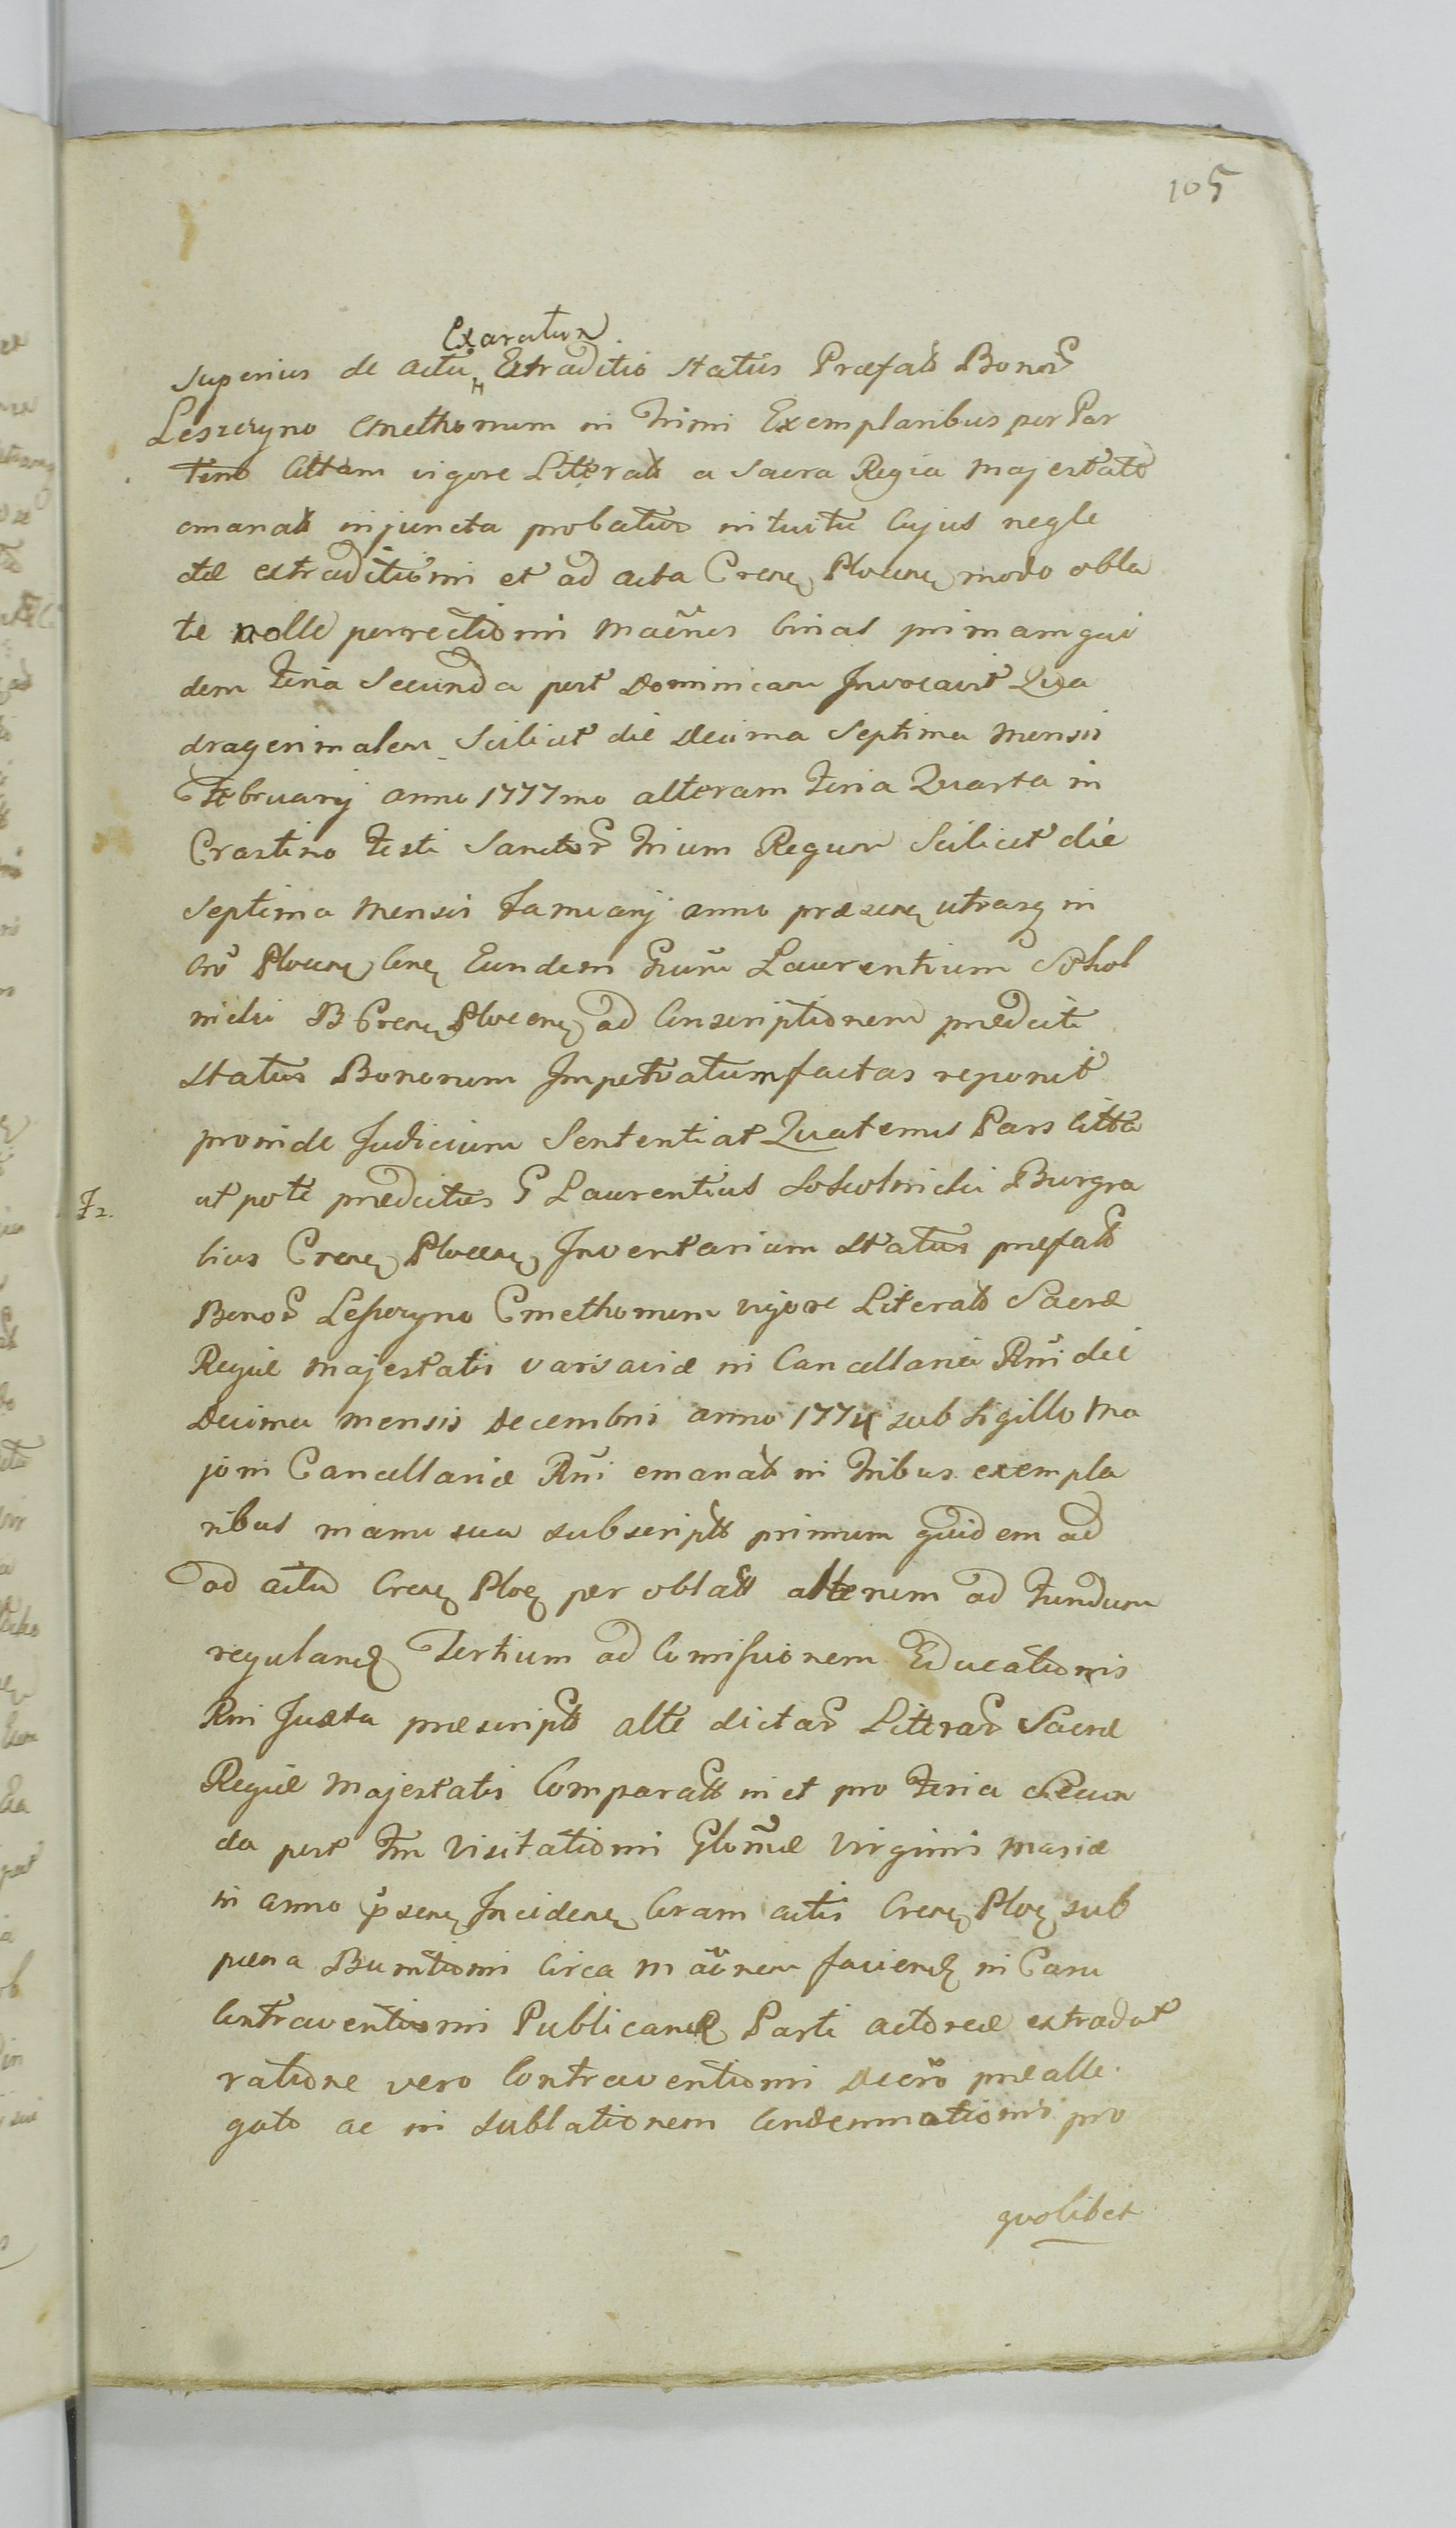 105
Exaratur
Superius de actu Extraditio Status Præfat Bonor
Leszczyno Cmethonum in Trinis Exemplaribus per Par
tem Cittam vigore Literat a Sacra Regia Majestate
emanat injuncta probatur intuitu Cujus negle
ctæ extraditionis et ad acta Crens Plocens modo obla
te nolle perrectionis Maōnes binas primam qui
dem Feria Secunda post Dominicam Invocavit Qua
dragesimalem Scilicet die Decima Septima Mensis
Februarij anno 1777mo alteram Feria Quarta in
Crastino Festi Sanctor Trium Regum Scilicet die
Septima Mensis Januarij anno præsens utrasq in
Cro Plocens Cens Eundem Grum Laurentium Sokol
nicki B Crens Plocens ad Conscriptionem prædicti
Status Bonorum Impetratum factas reponit
proinde Judicium Sententiat Quatenus Pars Citta
utpote prædictus G Laurentius Sokolnicki Burgra
bius Crens Plocens Inventarium Status præfat
F2.
Bonor Leszczyno Cmethonum vigore Literat Sacræ
Regiæ Majestatis Varsaviæ in Cancellaria Rni die
Decima Mensis Decembris anno 1774 sub Sigillo Ma
joris Cancellariæ Rni emanat in Tribus exempla
ribus manu sua subscript primum quidem ad
ad acta Crens Ploc per oblatt alterum ad Fundum
reguland Tertium ad Comissionem Educationis
Rni Juxta præscript alte dictar Litterar Sacræ
Regiæ Majestatis Comparatt in et pro Feria Secun
da post Ftm Visitationis Glōmæ Virginis Mariæ
in anno p̄sens Incidens Coram actis Crens Ploc sub
pæna Bannitionis Circa Maōnem faciend in Casu
Contraventionis Publicand Parti actoreæ extradat
ratione vero Contraventionis Decro præalle
gato ac in sublationem Condemnationis pro
quolibet